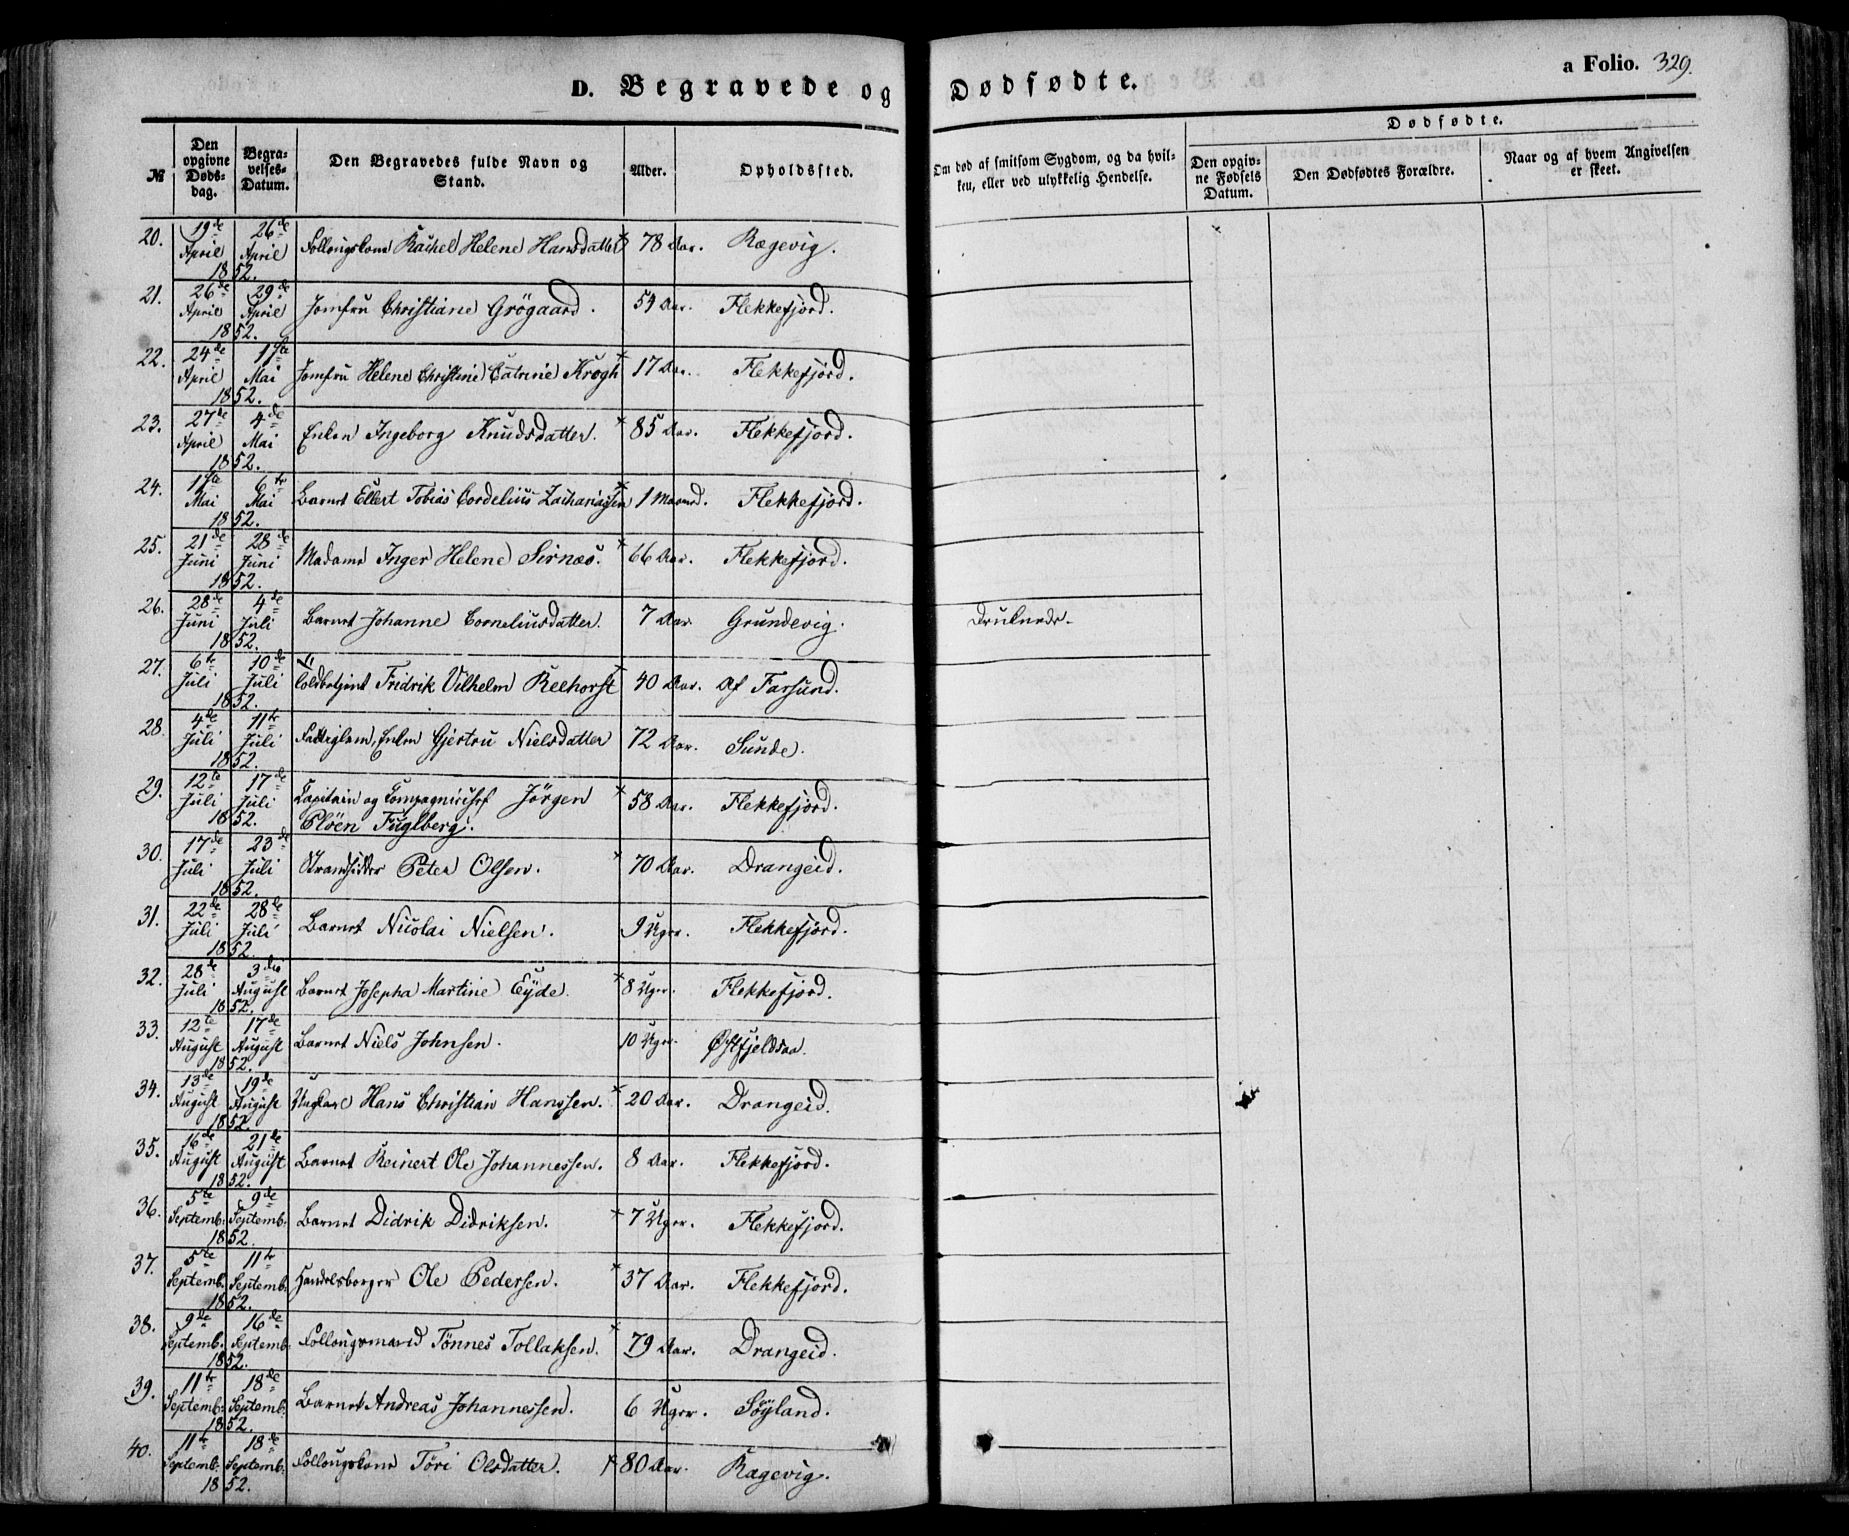 D. Begravede og Dødfødte.
a Folio. 329.
№
Den opgivne Døds-dag.
Begra-velses-Datum.
Den Begravedes fulde Navn og Stand.
Alder.
Opholdssted.
Om død af smitsom Sygdom, og da hvil-ken, eller ved ulykkelig Hendelse.
Dødfødte.
Den opgiv-ne Fødsels Datum.
Den Dødfødtes Forældre.
Naar og af hvem Angivelsen er skeet.
20. 19de April 26de April 1852. Rachel Helene Hansdatter 78 Aar. Rægevig.
21. 26de April 29de April 1852. Jomfru Christiane Grögaard. 54 Aar. Flekkefjord.
22. 24de April 1ste Mai 1852. Jomfru Helene Christine Catrine Krogh 17 Aar. Flekkefjord.
23. 27de April 4de Mai 1852. Enken Ingeborg Knudsdatter. 85 Aar. Flekkefjord.
24. 1ste Mai 6te Mai 1852. Barnet Ellert Tobias Cordelius Zachariassen 1 Maaned. Flekkefjord.
25. 21de Juni 28de Juni 1852. Madame Inger Helene Sirnæs. 66 Aar. Flekkefjord.
26. 28de Juni 4de Juli 1852. Barnet Johanne Corneliusdatter. 7 Aar Grundevig. Druknede.
27. 6te Juli 10de Juli 1852. Toldbetjent Fridrik Vilhelm Reehorst 40 Aar. Af Farsund.
28. 4de Juli 11te Juli 1852. Fattiglem, Enken Gjertru Nielsdatter 72 Aar. Sunde.
29. 12te Juli 17de Juli 1852. Capitain og Compagnichef Jörgen Plöen Fuglberg. 58 Aar. Flekkefjord.
30. 17de Juli 23de Juli 1852. Strandsidder Peter Olsen. 70 Aar. Drangeid.
31. 22de Juli 28de Juli 1852. Barnet Nicolai Nielsen. 9 Uger. Flekkefjord.
32. 28de Juli 3die August 1852. Barnet Josepha Martine Eyde. 8 Uger. Flekkefjord.
33. 12te August 17de August 1852. Barnet Niels Johnsen. 10 Uger. Østfjeldsaa.
34. 13de August 19de August 1852. Ungkarl Hans Christian Hanssen. 20 Aar. Drangeid.
35. 16de August 21de August 1852. Barnet Reinert Ole Johannessen. 8 Aar. Flekkefjord.
36. 5te Septemb. 9de Septemb. 1852. Barnet Didrik Didriksen. 7 Uger. Flekkefjord.
37. 5te Septemb. 11te Septemb. 1852. Handelsborger Ole Pedersen. 37 Aar. Flekkefjord.
38. 9de Septemb. 16de Septemb. 1852. Follougsmand Tönnes Tollaksen. 79 Aar. Drangeid.
39. 11te Septemb. 18de Septemb. 1852. Barnet Andreas Johannessen. 6 Uger. Söyland.
40. 11te Septemb. 18de Septemb. 1852. Follougskone Töri Olsdatter. 80 Aar. Rægevig.